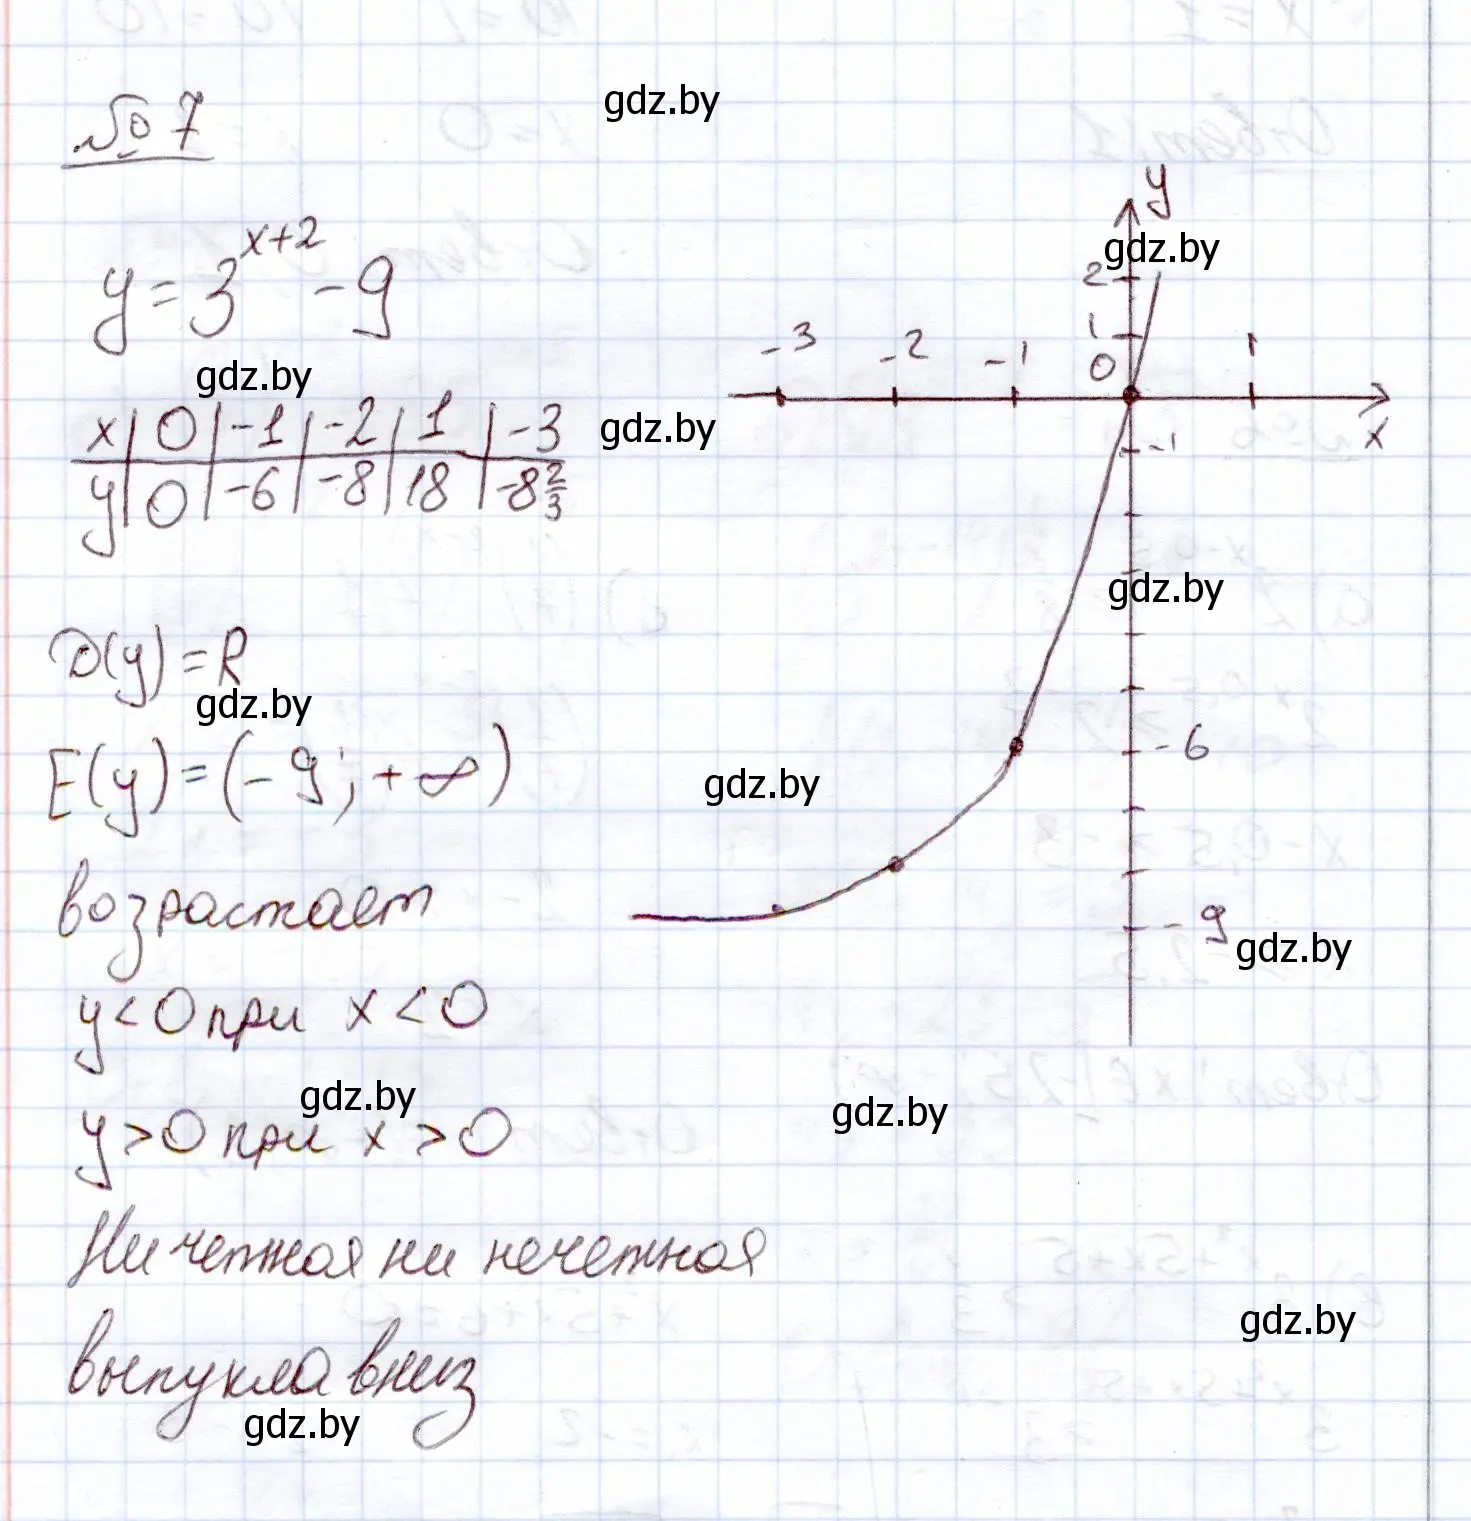 № 7
gdz.by
y = 3^{x+2} - 9
gdz.by
x | 0 | -1 | -2 | 1 | -3
y | 0 | -6 | -8 | 18 | -8 2/3
gdz.by
D(y) = R
gdz.by
E(y) = (-9; +∞)
возрастает
y < 0 при x < 0
gdz.by
y > 0 при x > 0
Ни четная ни нечетная
выпукла вниз
gdz.by
y
gdz.by
2
1
-3 -2 -1 0 1
x
-1
gdz.by
-6
gdz.by
-9
gdz.by
gdz.by
gdz.by